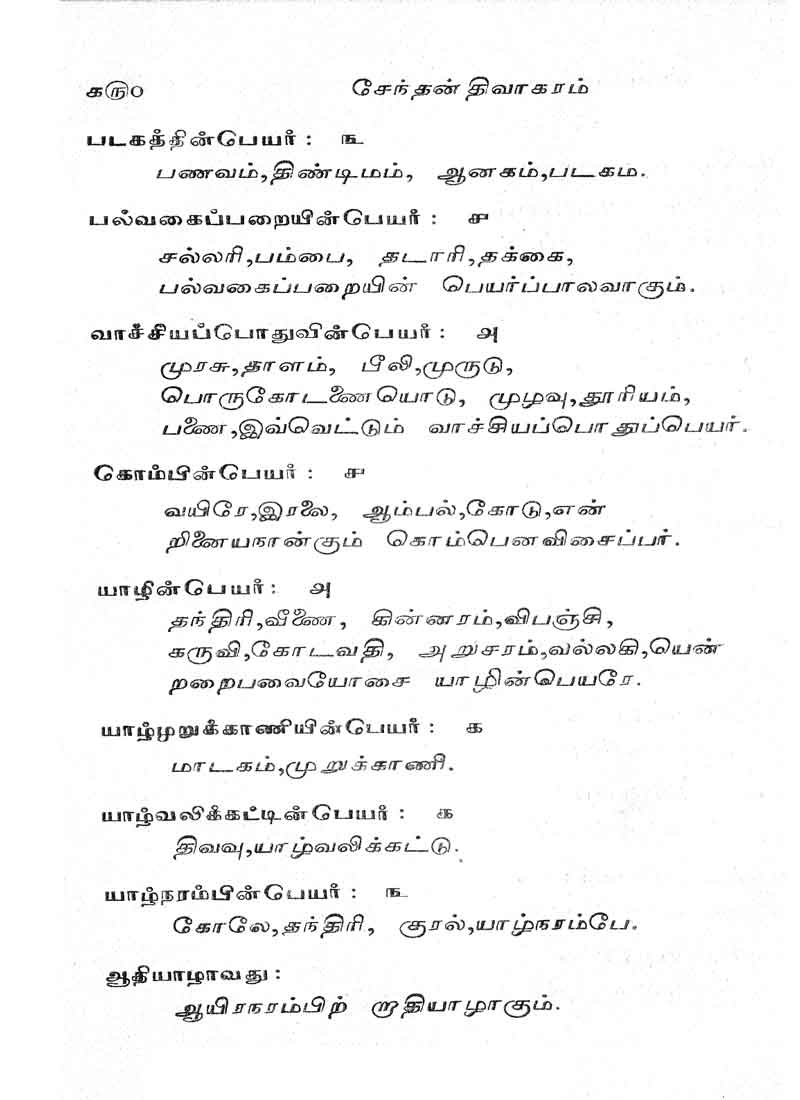 க௫0 சேந்தன் திவாகரம்
படகத்தின்பெயர் : ௩
பணவம்,திண்டிமம், ஆனகம்,படகம.
பல்வகைப்பறையின்பெயர் : ௪
சல்லரி,பம்பை, தடாரி,தக்கை,
பல்வகைப்பறையின் பெயர்ப்பாலவாகும்.
வாச்சியப்போதுவின்பெயர் : அ
முரசு,தாளம், பீலி,முருடு,
பொருகோடணையொடு, முழவு,தூரியம்,
பணை,இவ்வெட்டும் வாச்சியப்பொதுப்பெயர்.
கோம்பின்பெயர் : ௪
வயிரே,இரலை, ஆம்பல்,கோடு,என்
றினையநான்கும் கொம்பெனவிசைப்பர்.
யாழின்பெயர் : அ
தந்திரி,வீணை, கின்னரம்,விபஞ்சி,
கருவி,கோடவதி, அறுசரம்,வல்லகி,யென்
றறைபவையோசை யாழின்பெயரே.
யாழ்முறுக்காணியின்பேயர் : க
மாடகம்,முறுக்காணி.
யாழ்வலிக்கட்டின்பேயர் : க
திவவு,யாழ்வலிக்கட்டு.
யாழ்நரம்பின்பேயர் : ௩
கோலே,தந்திரி, குரல்,யாழ்நரம்பே.
ஆதியாழாவது :
ஆயிரநரம்பிற் றாதியாழாகும்.